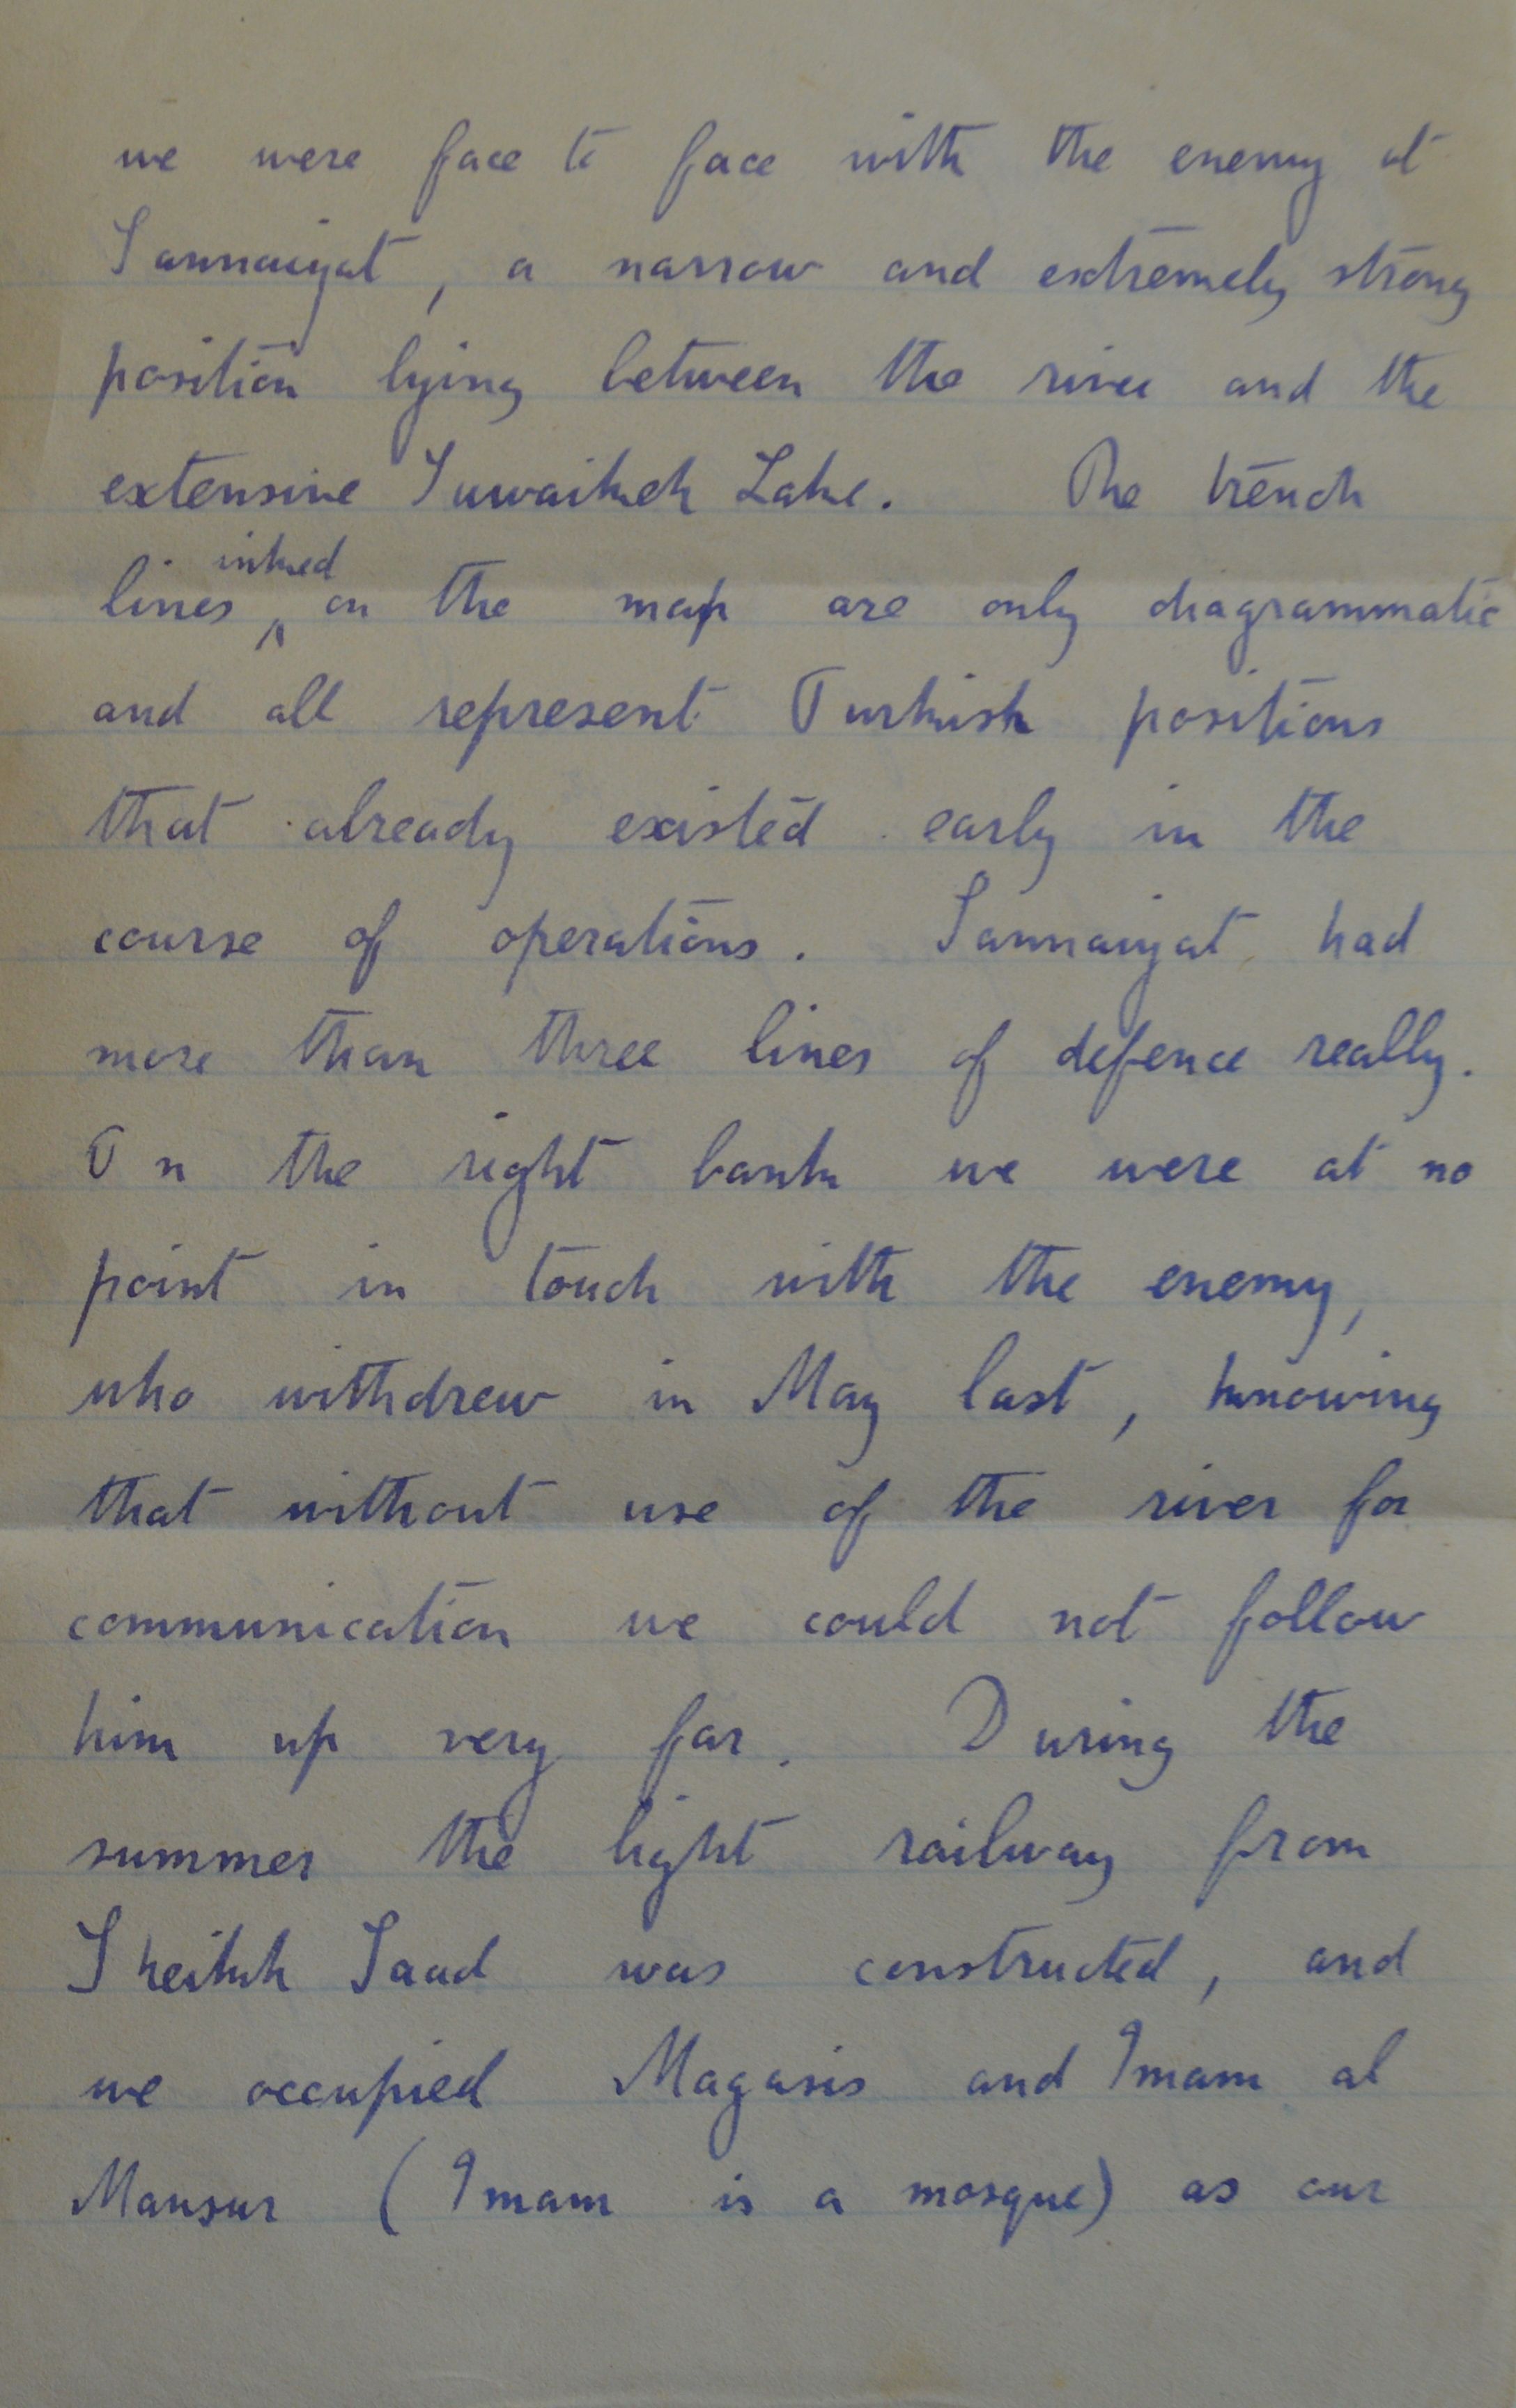 we were face to face with the enemy at
Sannaiyat, a narrow and extremely strong
position lying between the river and the
extensive Suwaikeh Lake. The trench
lines inked on the map are only diagrammatic
and all represent Turkish positions
that already existed early in the
course of operations. Sannaiyat had
more than three lines of defence really.
On the right bank we were at no
point in touch with the enemy,
who withdrew in May last, knowing
that without use of the river for
communication we could not follow
him up very far. During the
summer the light railway from
Sheikh Saad was constructed, and
we occupied Magasis and Imam al
Mansur (Imam is a mosque) as our